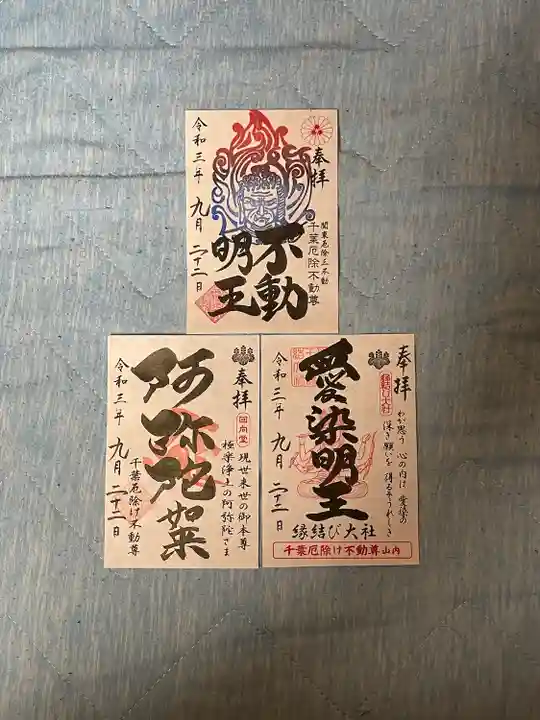 奉拝
関東厄除三不動
千葉厄除不動尊
不動
明王
令和三年 九月 二十二日
奉拝
回向堂
現世来世の御本尊
極楽浄土の阿弥陀さま
阿弥陀如来
千葉厄除け不動尊
令和三年 九月 二十二日
奉拝
縁結び大社
わが思う 心の内は 愛染の
深き願いを 得るぞうれしき
愛染明王
令和三年 九月 二十二日
縁結び大社
千葉厄除け不動尊山内